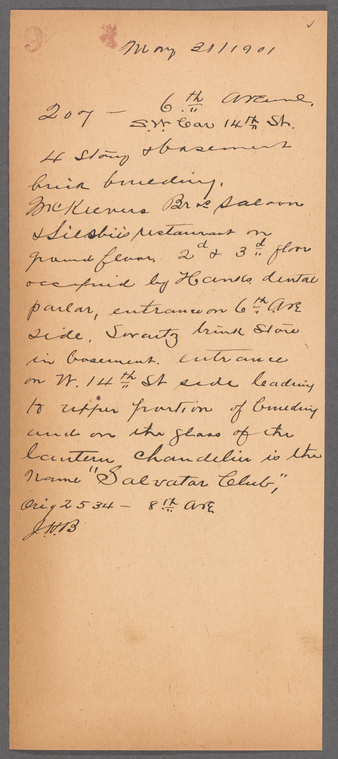 May 31/1901
207 — 6th Avenue,
S.W. Cor 14th St.
4 Story & basement
brick building.
McKievers Bros Saloon
& restaurant on
ground floor, 2d & 3d floor
occupied by Hanks dental
parlor, entrance on 6th Ave
side. trunk Store
in basement. entrance
on W. 14th St side leading
to upper portion of building
and on the glass of the
lantern chandelier is the
name "Salvatar Club",
Orig 2534 — 8th Ave